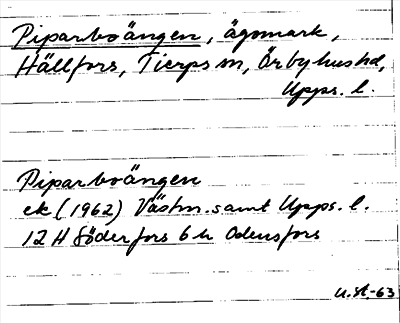 Piparboängen, ägomark,
Hällfors, Tierps sn, Örbyhus hd,
Upps. l.
Piparboängen
ek (1962) Västm. samt Upps. l.
12 H Söderfors 6 h Odensfors
-63